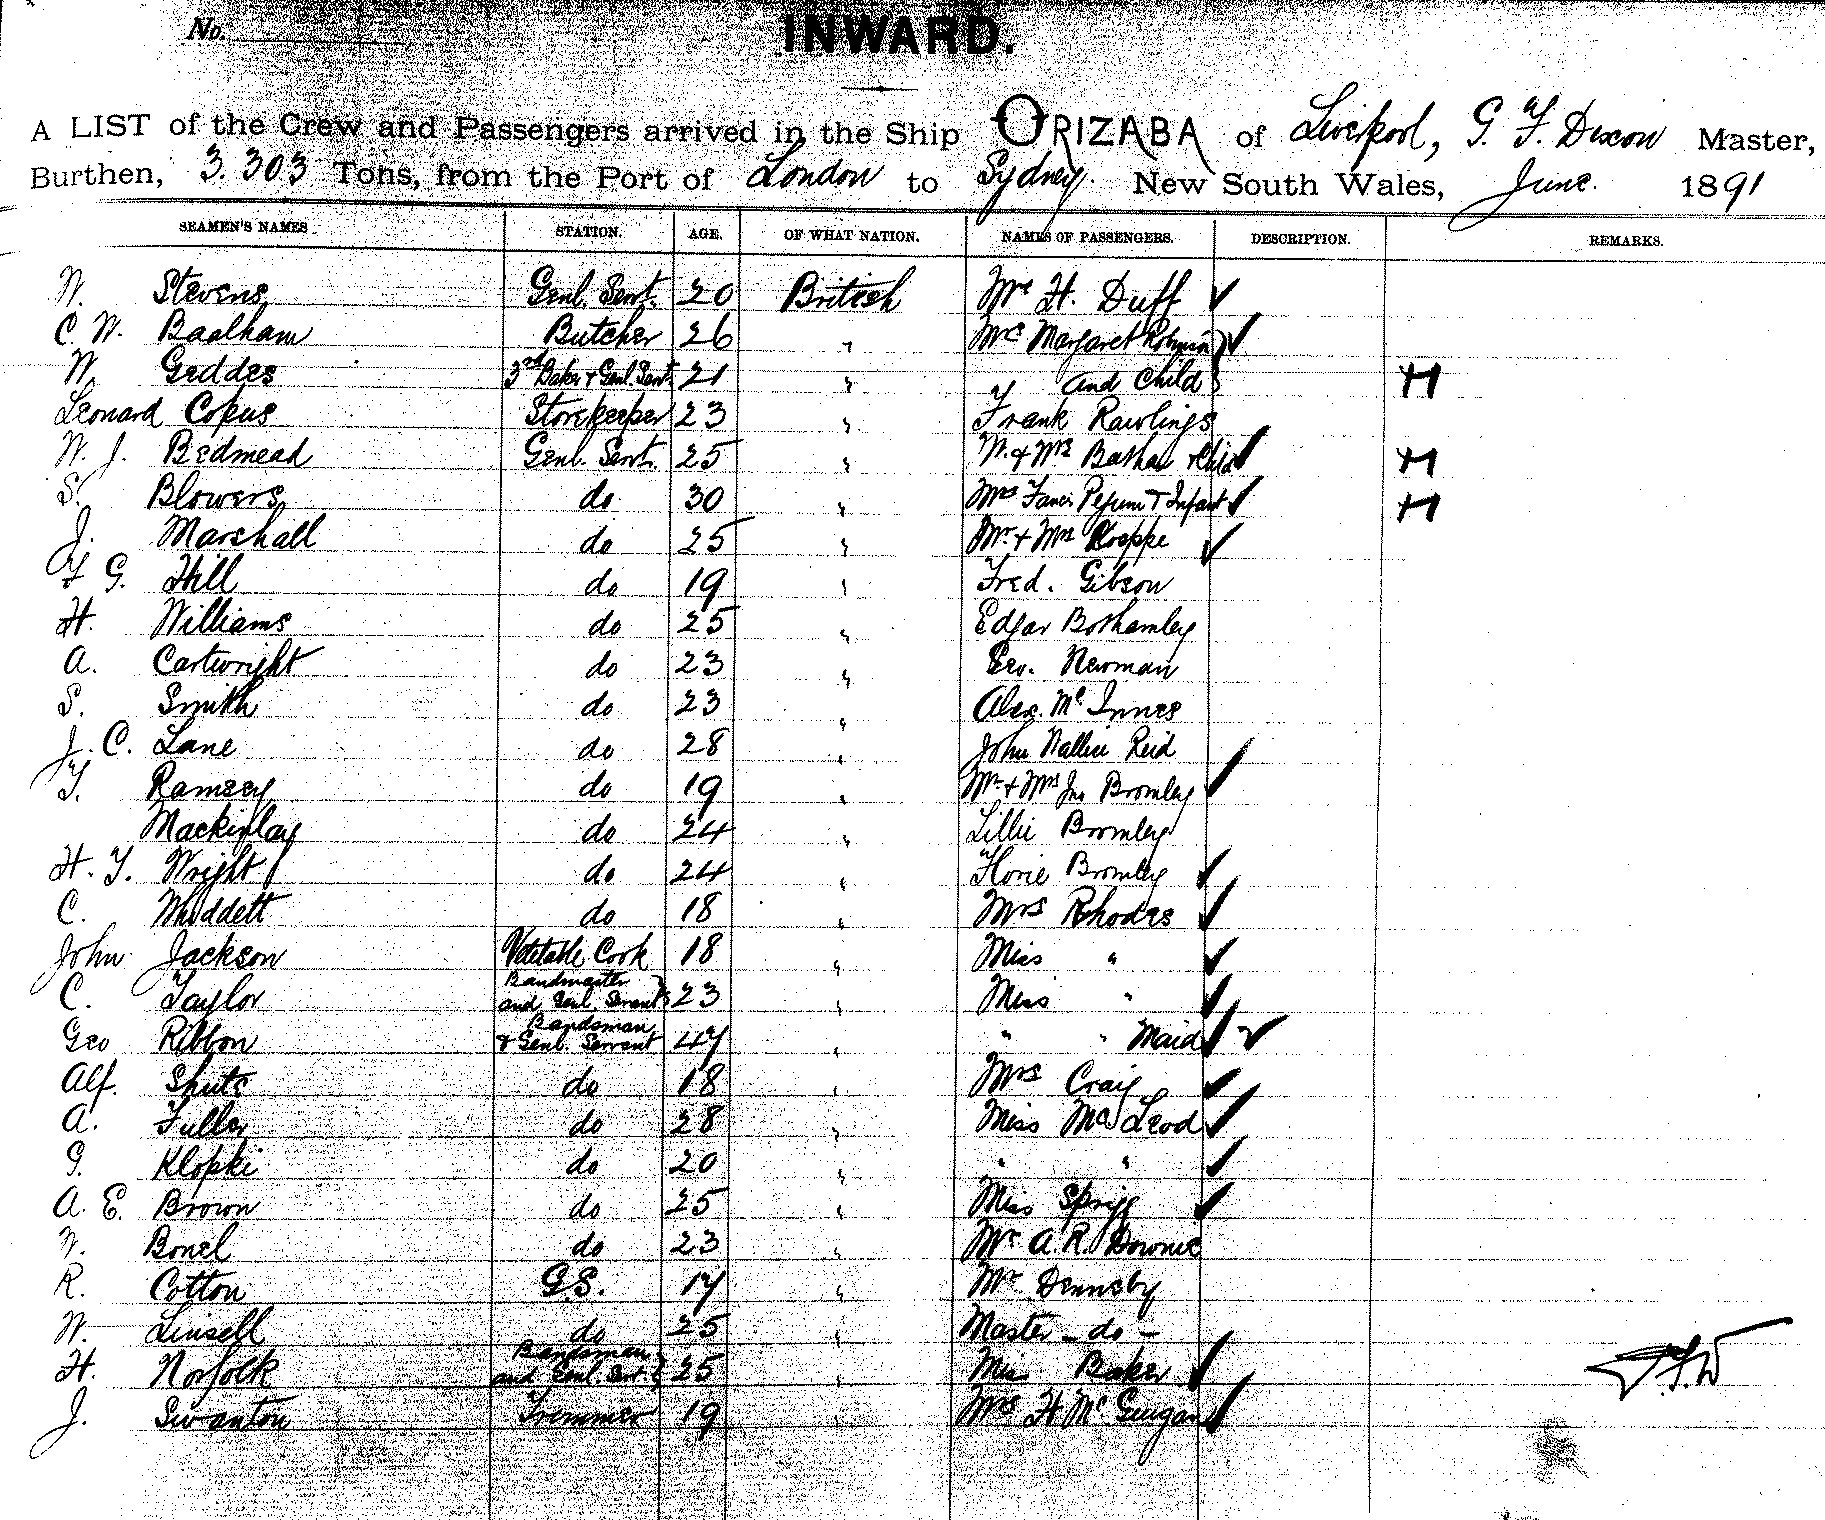 No.
INWARD.
A LIST of the Crew and Passengers arrived in the Ship ORIZABA of Liverpool, G. F. Dixon Master,
Burthen, 3.303 Tons, from the Port of London to Sydney. New South Wales, June. 1891
SEAMEN'S NAMES STATION. AGE. OF WHAT NATION. NAMES OF PASSENGERS. DESCRIPTION. REMARKS.
W. Stevens Genl. Servt. 20 British Mr H. Duff ✓
C. W. Baalham Butcher 26 " Mrs Margaret ✓
W. Geddes 3rd Baker & Genl. Servt. 21 " and Child H
Leonard Copus Storekeeper 23 " Frank Rawlings
W. J. Bedmead Genl. Servt. 25 " & Mrs & Child ✓ H
S. Blowers do 30 " Mrs & Infant ✓ H
J. Marshall do 25 " Mr. & Mrs ✓
F G. Hill do 19 " Fred. Gibson
H. Williams do 25 " Edgar Bothamley
A. Cartwright do 23 " Geo. Newman
S. Smith do 23 " Alex. McInnes
J. C. Lane do 28 " John Reid
T. Ramsey do 19 " Mr & Mrs Jno Bromley ✓
Mackinlay do 24 " Lillie Bromley
H. T. Wright do 24 " Florie Bromley ✓
C. Muddett do 18 " Mrs Rhodes ✓
John Jackson Vegetable Cook 18 " Miss " ✓
C. Taylor Bandmaster and Genl. Servant 23 " Miss " ✓
Geo Ribbon Bandsman & Genl. Servant 47 " " " Maid ✓ ✓
Alf. Shute do 18 " Mrs Craig ✓
A. Fuller do 28 " Miss McLeod ✓
G. Klopki do 20 " " " ✓
A. E. Brown do 25 " Miss Sprigg ✓
Bonel do 23 " Mr A. R. Downie
R. Cotton G.S. 17 " Mr Denneby
W. Linsell do 25 " Master - do -
H. Norfolk Bandsman and Genl. Servt. 25 " Miss Baker ✓
J. Swanton Trimmer 19 " Mrs H McGuigan ✓